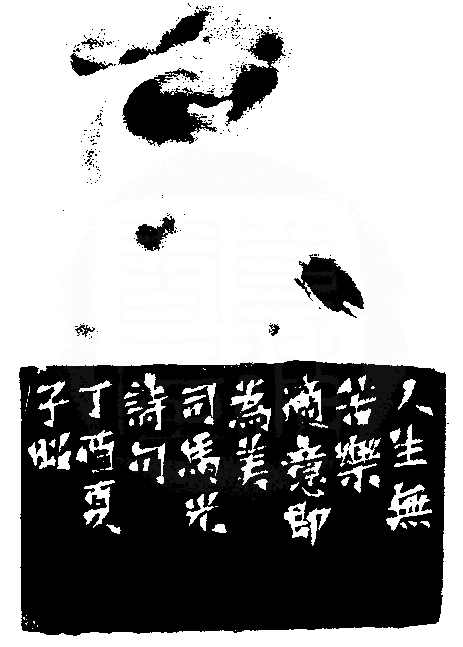 人生無
苦樂
適意即
為美
司馬光
詩句
丁酉夏
子昭